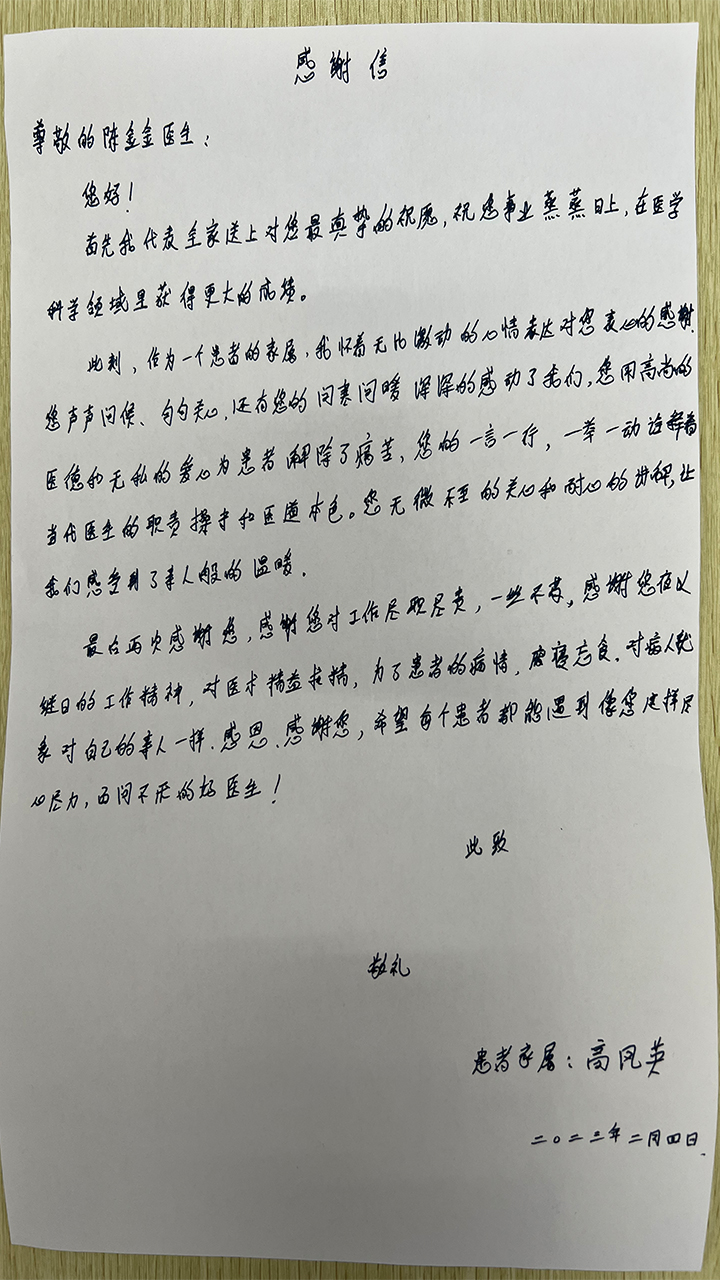 感谢信
尊敬的陈金金医生：
您好！
首先我代表全家送上对您最真挚的祝愿，祝您事业蒸蒸日上，在医学
科学领域里获得更大的成绩。
此刻，作为一个患者的家属，我怀着无比激动的心情表达对您衷心的感谢.
您声声问候、句句关心，还有您的问寒问暖深深的感动了我们，您用高尚的
医德和无私的爱心为患者解除了痛苦，您的一言一行，一举一动诠释着
当代医生的职责操守和医道本色。您无微不至的关心和耐心的讲解，让
我们感受到了亲人般的温暖.
最后再次感谢您，感谢您对工作尽职尽责，一丝不苟。感谢您夜以
继日的工作精神，对医术精益求精，为了患者的病情，废寝忘食.对病人就
象对自己的亲人一样.感恩.感谢您，希望每个患者都能遇到像您这样尽
心尽力，百问不厌的好医生！
此致
敬礼
患者家属：高凤英
二〇二三年二月四日.